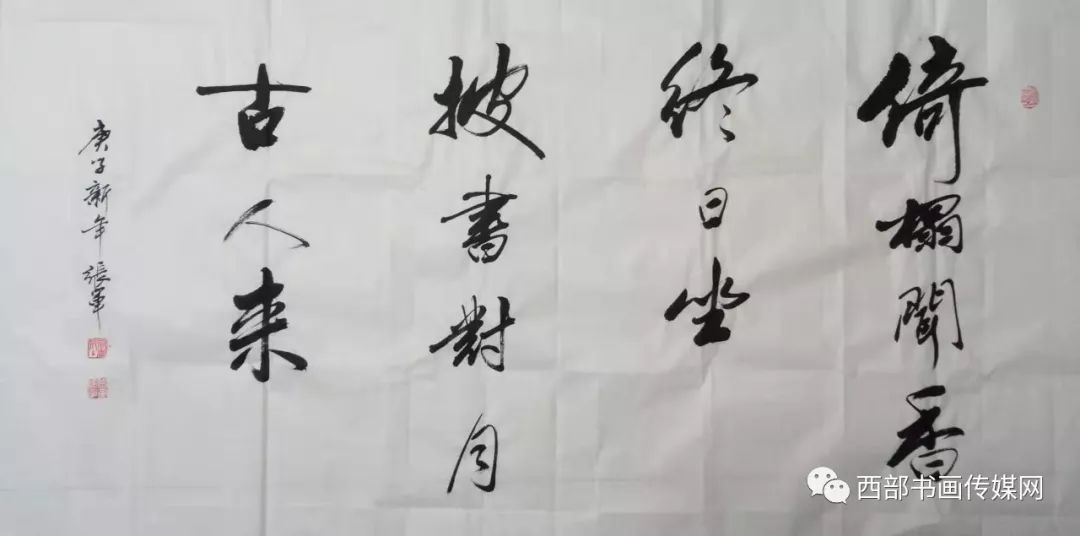 倚榻聞香
終日坐
披書對月
古人来
庚子新年 張軍
西部书画传媒网